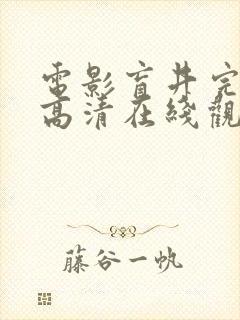 電影盲井完
高清在綫觀
藤谷一帆